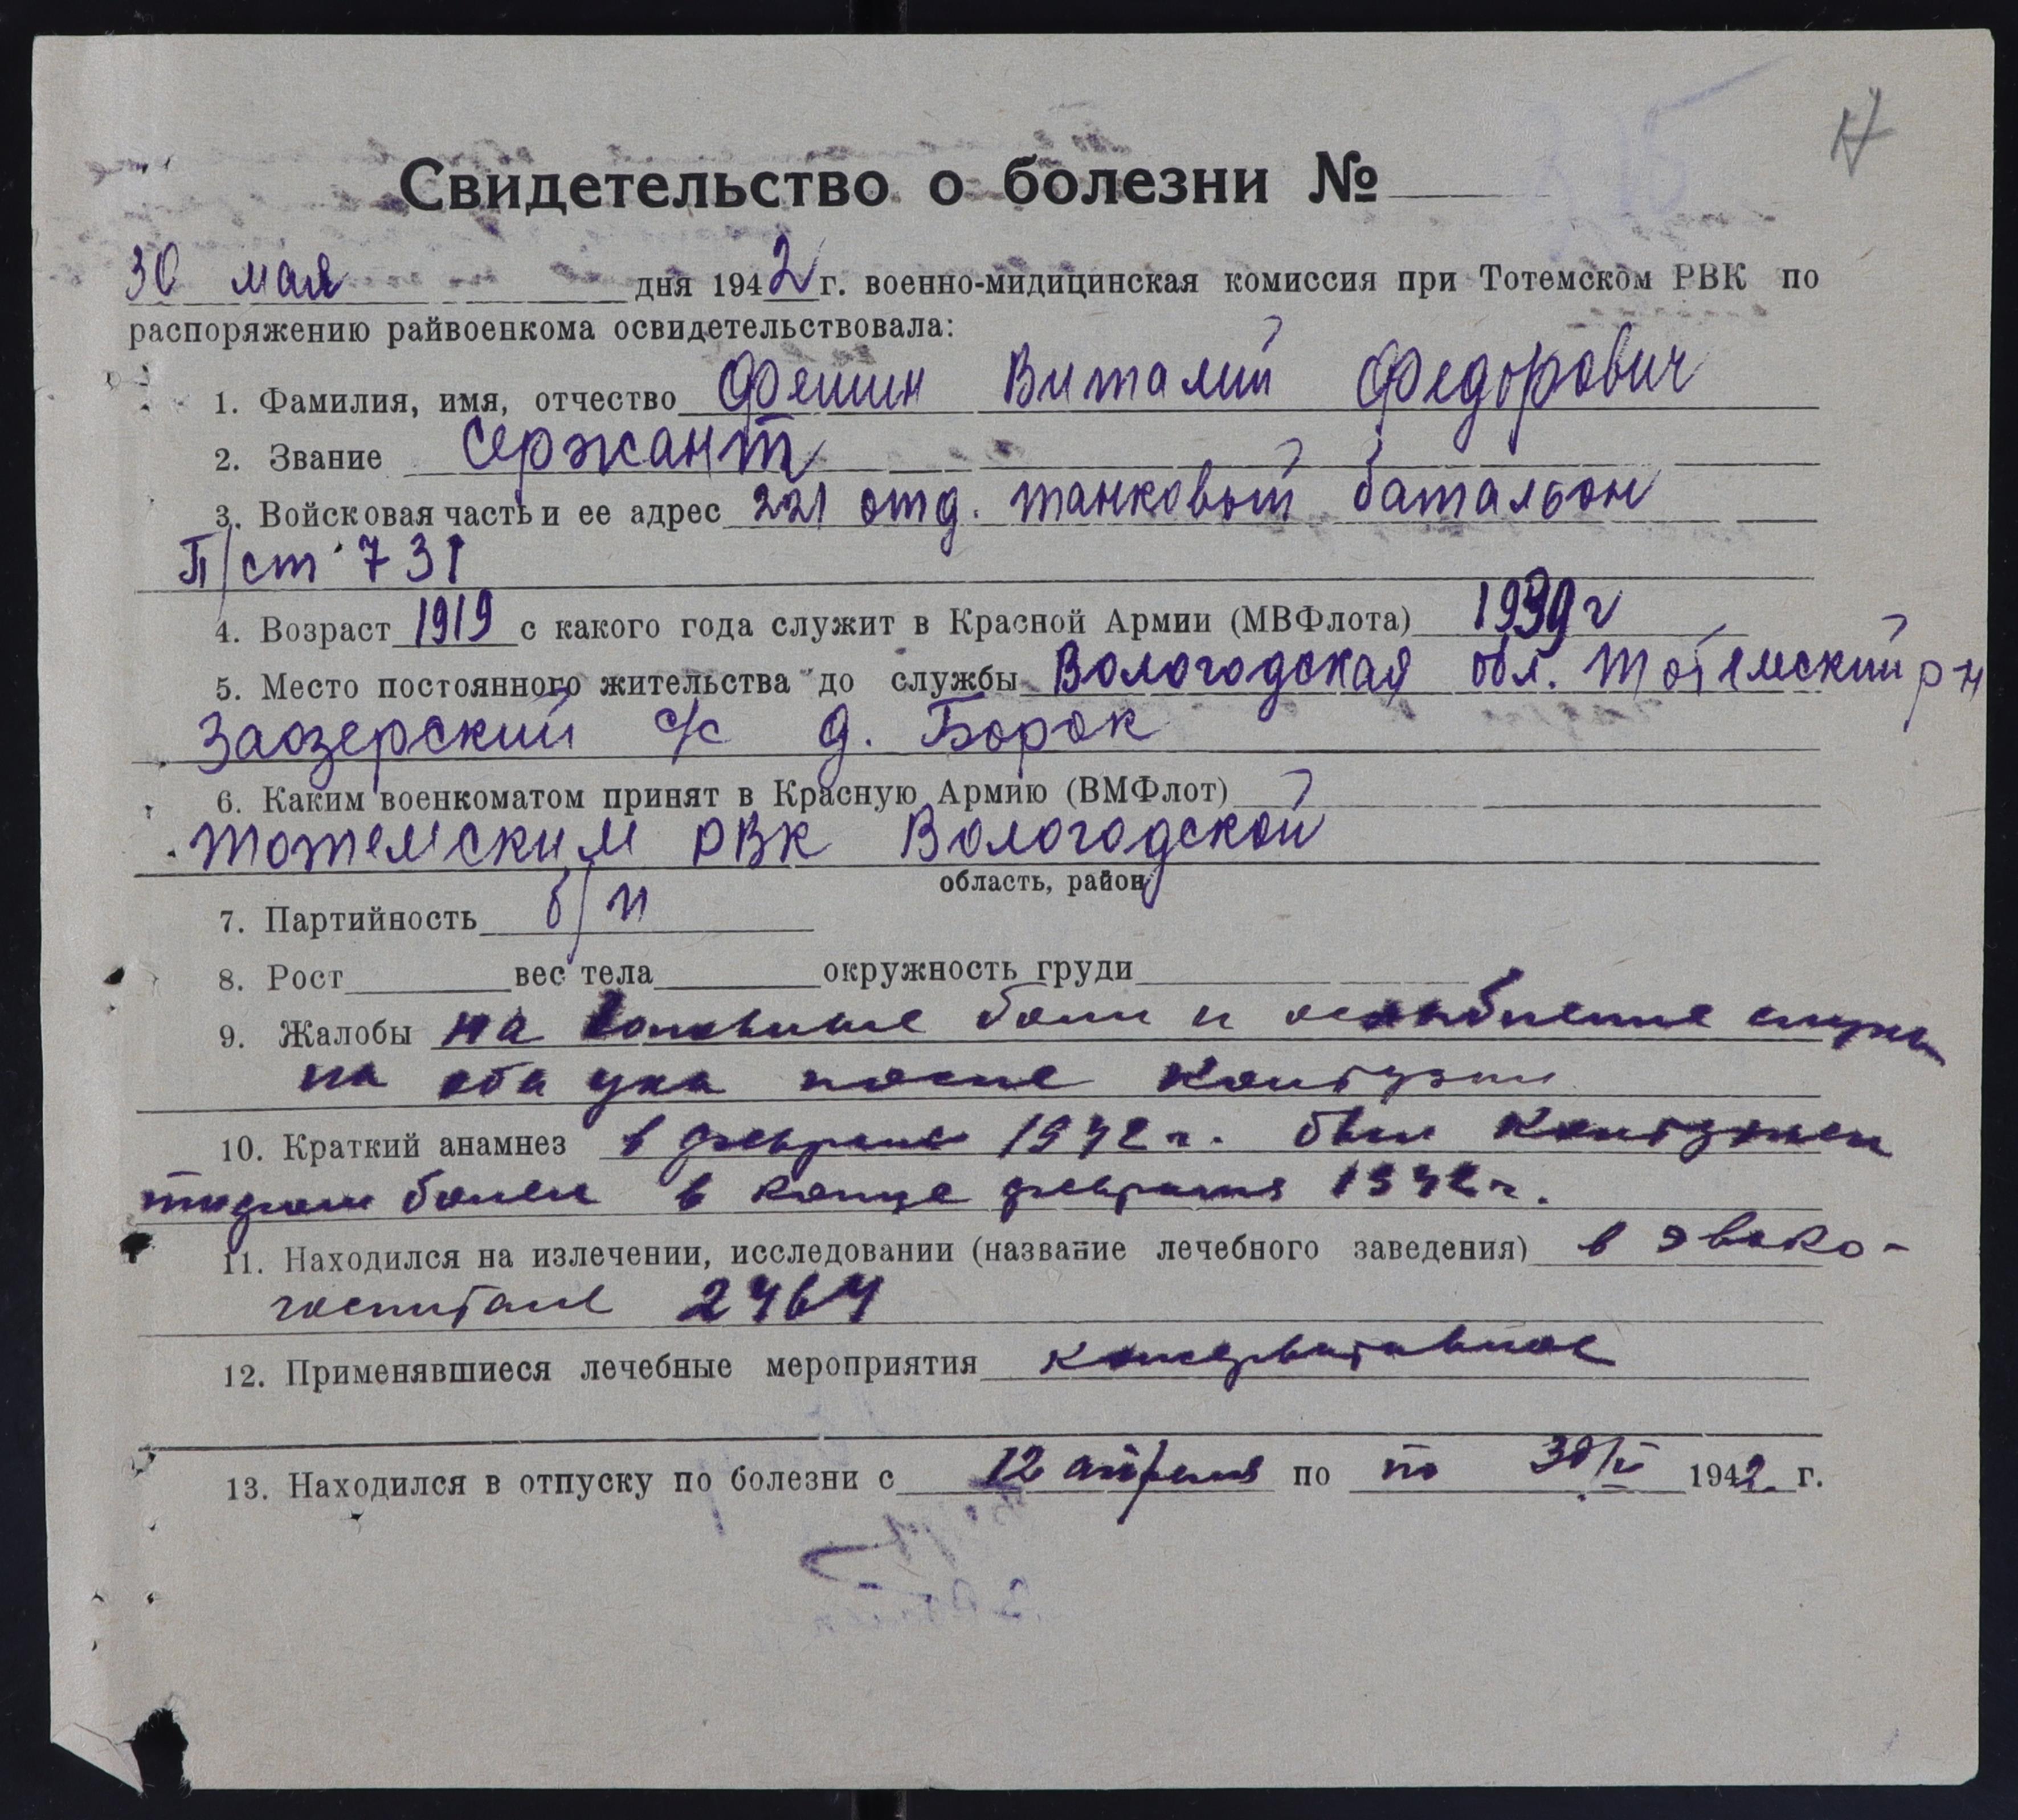 17
Свидетельство о болезни № 315
30 мая дня 1942 г. военно-мидицинская комиссия при Тотемском РВК по
распоряжению райвоенкома освидетельствовала:
1. Фамилия, имя, отчество Фешин Виталий Федорович
2. Звание Сержант
3. Войсковая часть и ее адрес 221 отд. танковый батальон
П/ст 731
4. Возраст 1919 с какого года служит в Красной Армии (МВФлота) 1939 г
5. Место постоянного жительства до службы Вологодская обл. Тотемский р-н
Заозерский с/с д. Борок
6. Каким военкоматом принят в Красную Армию (ВМФлот)
Тотемским РВК Вологодской
область, район
7. Партийность б/п
8. Рост вес тела окружность груди
9. Жалобы на головные боли и ослабление слуха
на оба уха после контузии
10. Краткий анамнез в феврале 1942 г. был контужен
тифом болел в конце февраля 1942 г.
11. Находился на излечении, исследовании (название лечебного заведения) в эвако-
госпитале 2464
12. Применявшиеся лечебные мероприятия консервативное
13. Находился в отпуску по болезни с 12 апреля по по 30/V 1942 г.